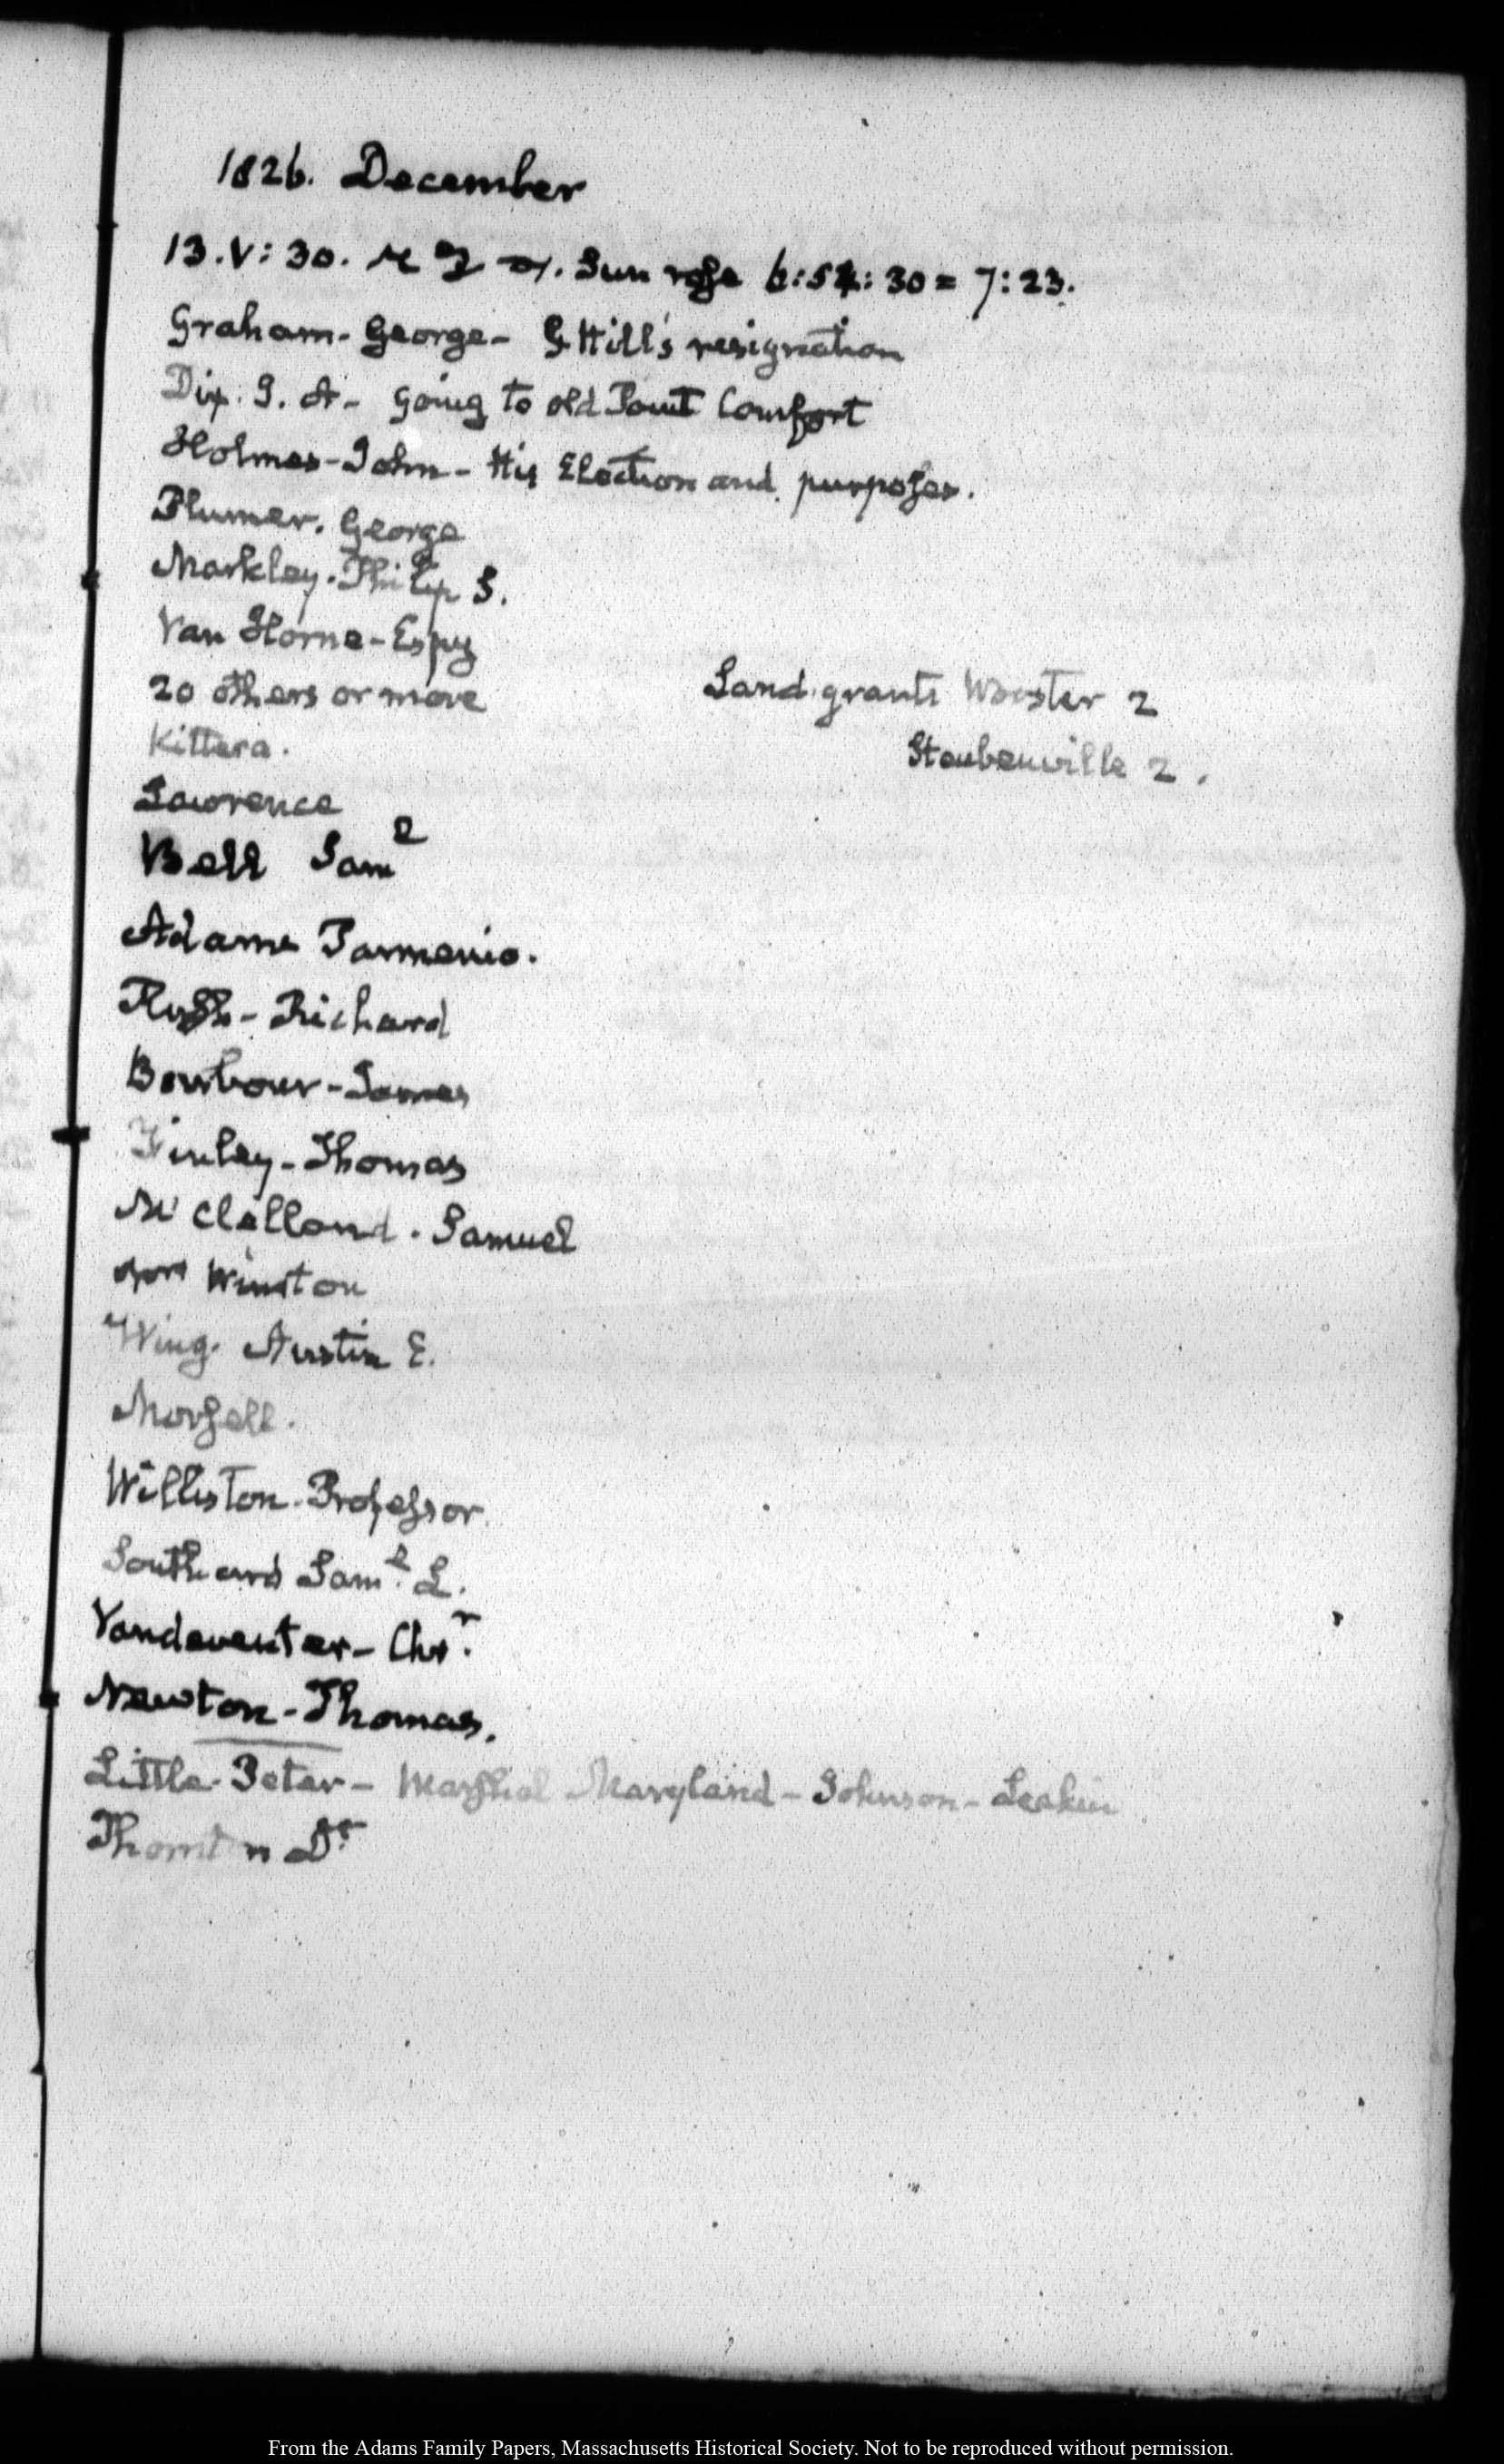 1826. December
13. V: 30. Sun rose 6:54:30 = 7:23.
Graham - George - G Hill's resignation
Dix. J. A - going to old Point Comfort
Holmes - John - His Election and purposes.
Plumer. George
Markley. Philip S.
Van Horne - Espy
20 others or more Land grants Wooster 2
Kittera. Steubenville 2.
Lawrence
Bell Saml
Adams Parmenio.
Rush - Richard
Barbour - James
Finley - Thomas
Mc Clelland. Samuel
Winston
Wing. Austin E.
Morsell.
Williston. Professor.
Southard Saml. L.
Vandeventer - Chr.
Newton - Thomas.
Little. Peter - Marshal Maryland - Johnson - Leakin
Thornton Dr.
From the Adams Family Papers, Massachusetts Historical Society. Not to be reproduced without permission.